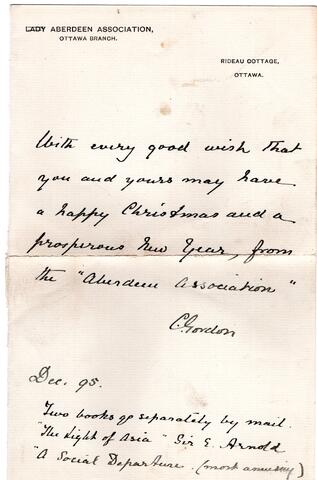 LADY ABERDEEN ASSOCIATION,
OTTAWA BRANCH.
RIDEAU COTTAGE,
OTTAWA.
With every good wish that
you and yours may have
a happy Christmas and a
prosperous New Year, from
the "Aberdeen Association"
C. Gordon
Dec. 95.
Two books go separately by mail.
"The Light of Asia" Sir E. Arnold
"A Social Departure. (most amusing)